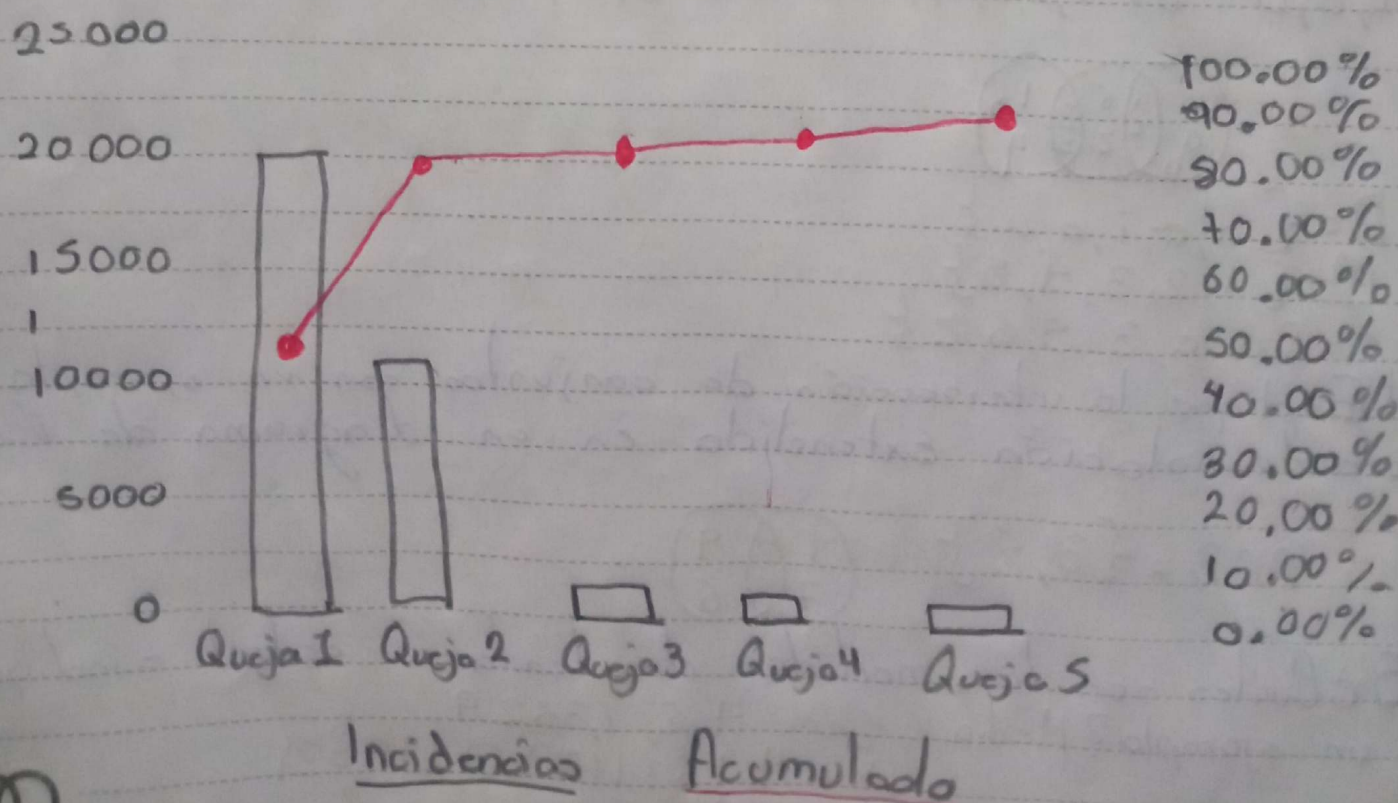 25000
20000
15000
1
10000
5000
0
100.00%
90.00%
80.00%
70.00%
60.00%
50.00%
40.00%
30.00%
20,00%
10.00%
0.00%
Queja 1 Queja 2 Queja 3 Queja 4 Queja 5
Incidencias Acumulado